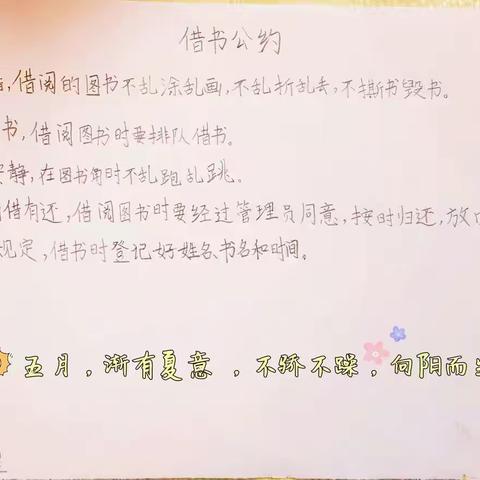 借书公约
借阅的图书不乱涂乱画,不乱折乱丢,不撕书毁书。
书,借阅图书时要排队借书。
静,在图书角时不乱跑乱跳。
借有还,借阅图书时要经过管理员同意,按时归还,放
规定,借书时登记好姓名、书名和时间。
五月,渐有夏意,不骄不躁,向阳而